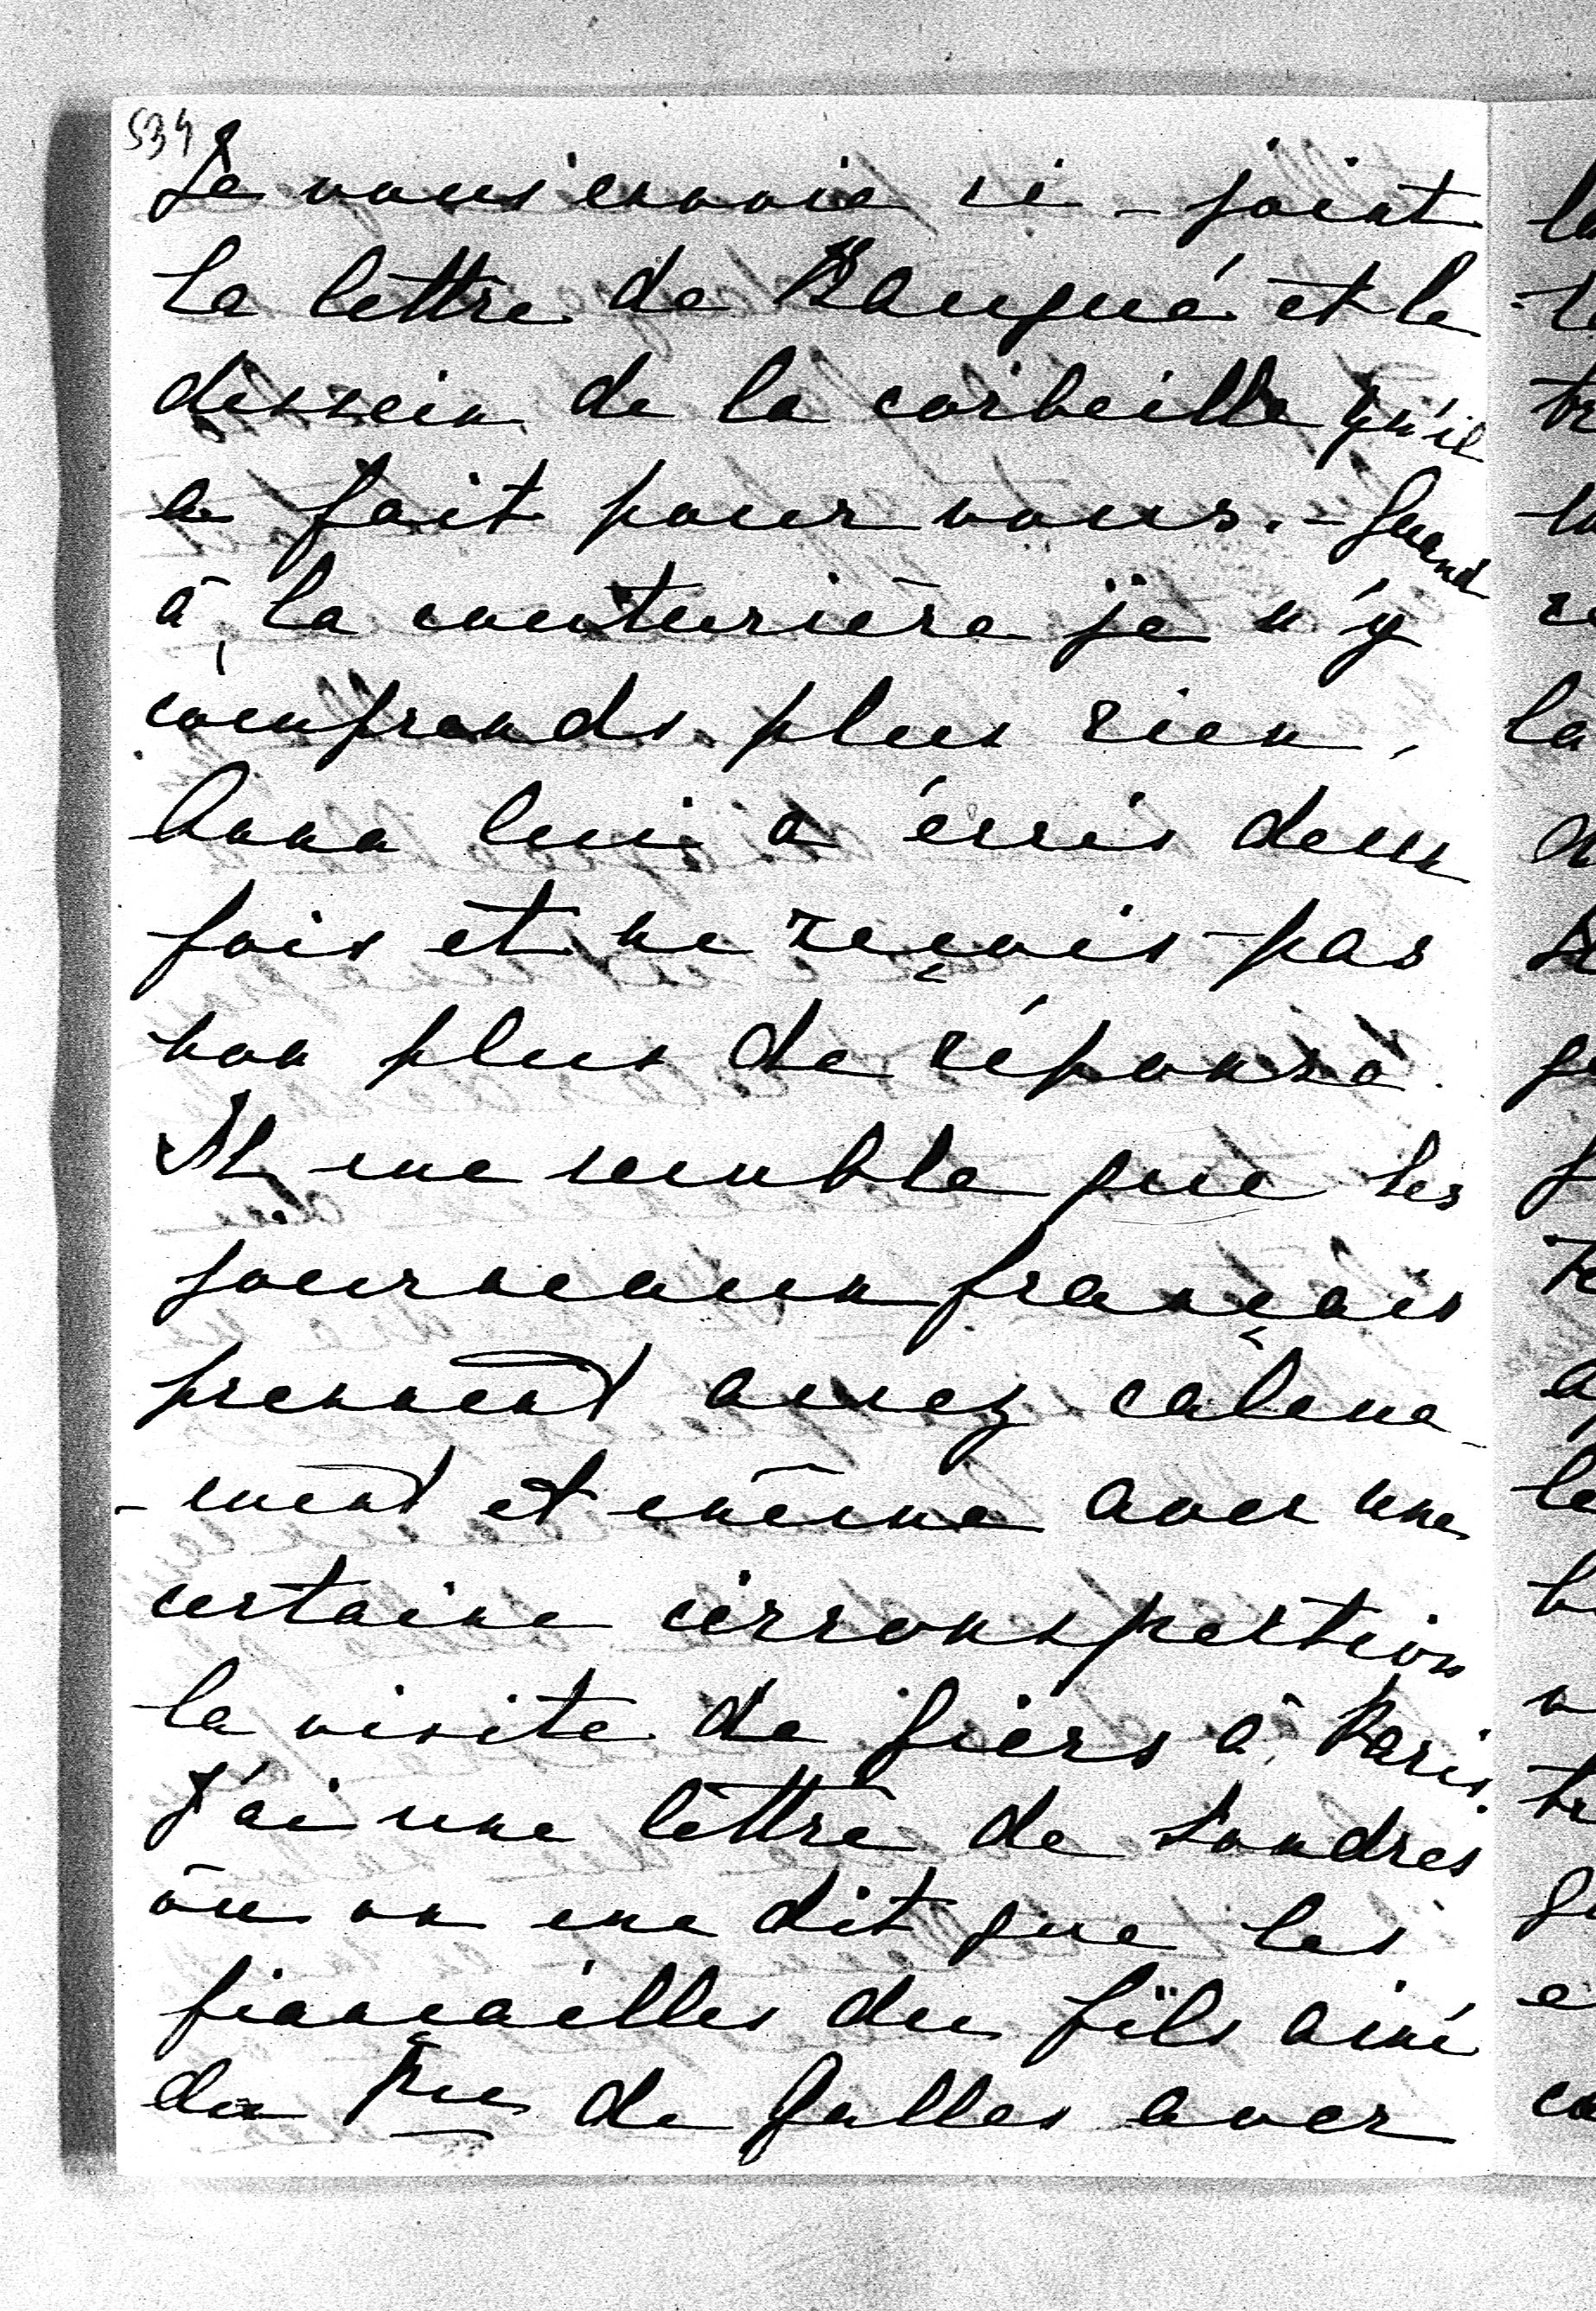 534
Je vous envoie ci-joint
la lettre de et le
dessein de la corbeille qu'il
a fait pour vous. – Quand
à la couturière je n'y
comprends plus rien,
Anna lui a écris deux
fois et ne reçois pas
non plus de réponse.
Il me semble que les
journeaux français
prennent assez calme-
-ment et même avec une
certaine circonspection
la visite de Giers à Paris.
J'ai une lettre de Londres
où on me dit que les
fiançailles du fils ainé
du Pce de Galles avec